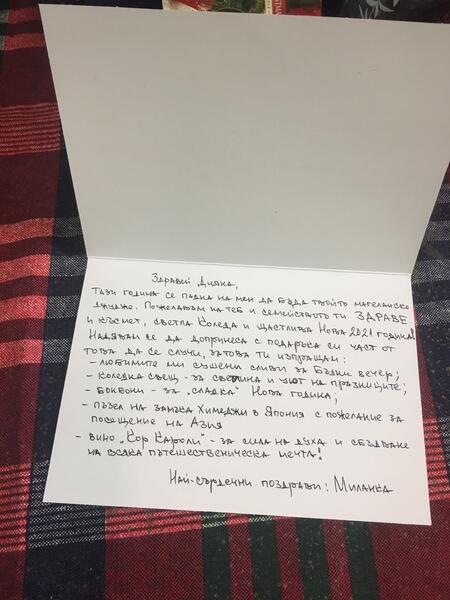 Здравей Дияна,
Тази година се падна на мен да бъда твойто магеланско
джудже. Пожелавам на теб и семейството ти ЗДРАВЕ
и късмет, светла Коледа и щастлива Нова 2021 година!
Надявам се да допринеса с подаръка си част от
това да се случи, затова ти изпращам:
- любимите ми сушени сливи за Бъдни вечер;
- Коледна свещ - за светлина и уют на празниците;
- бонбони - за „сладка" Нова година;
- пъзел на замъка Химеджи в Япония с пожелание за
посещение на Азия
- вино „Кор Кароли" - за сила на духа и сбъдване
на всяка пътешественическа мечта!
Най-сърдечни поздрави: Миланка